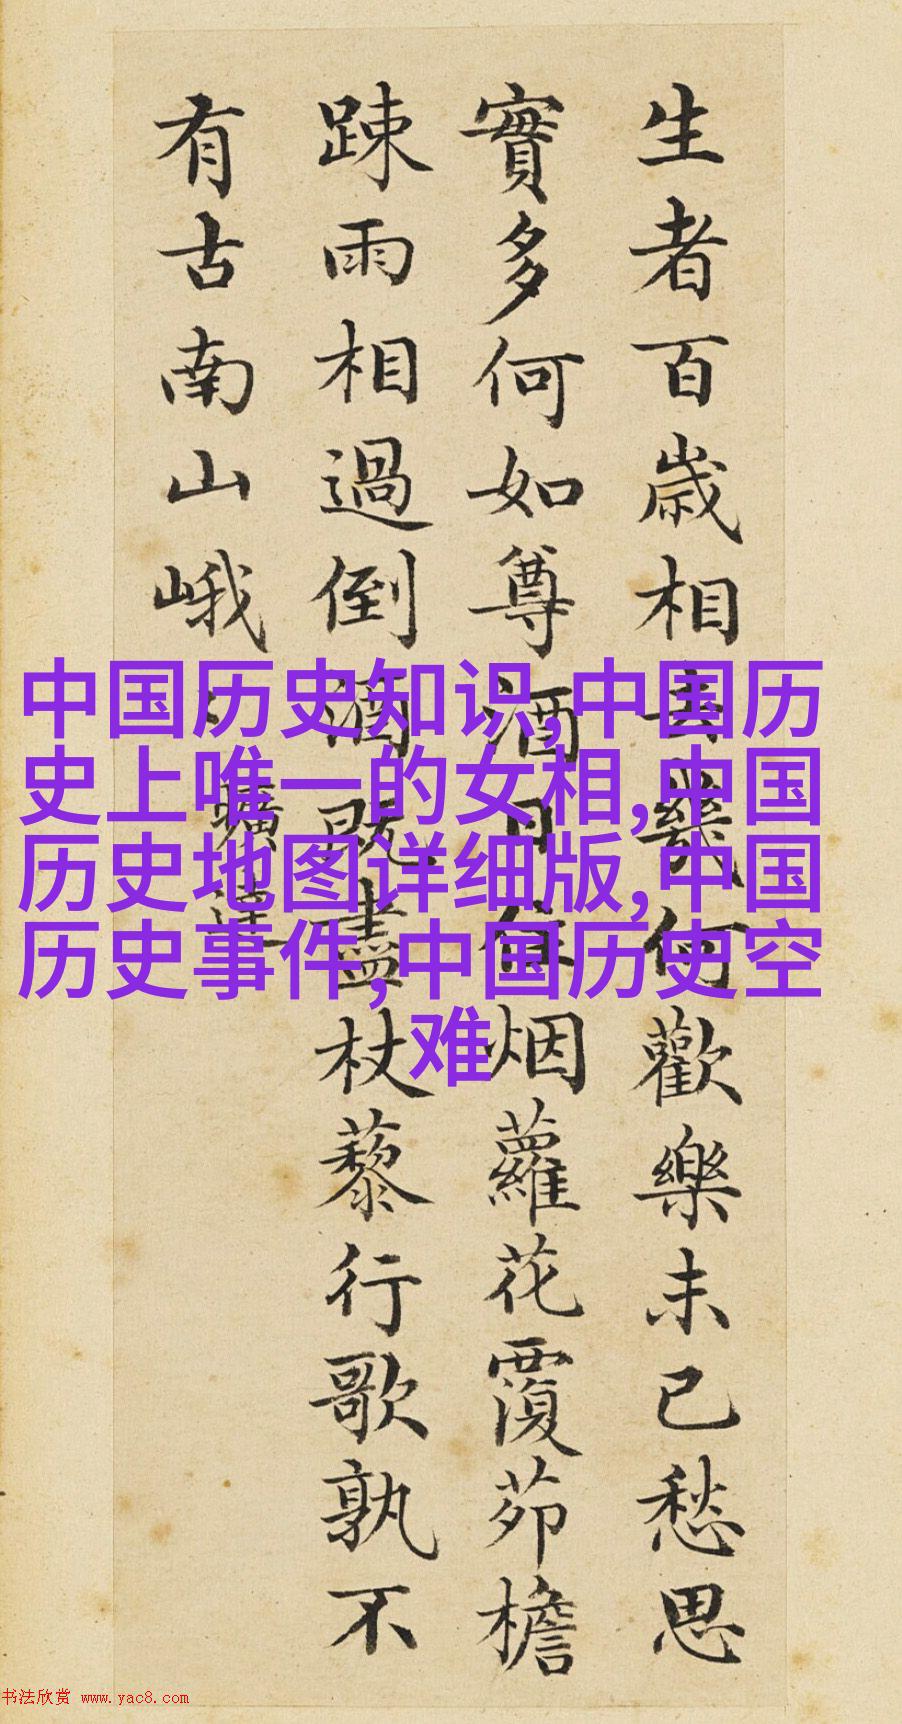 生者百歳相去幾何歡樂未已愁思
實多何如尊酒日往烟蘿花覆茆檐
踈雨相過倒酒既盡杖藜行歌孰不
有古南山峨
曠達
中国历史知识,中国历
史上唯一的女相,中国
历史地图详细版,中国
历史事件,中国历史空
难
书法欣赏 www.yac8.com